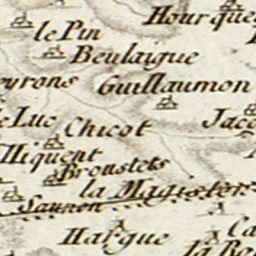 Hourque
le Pin
Beulaigue
eyrons
Guillaumon
Jace
e Luc
Chicot
Hiquent
Broustets
la Magistere
Saunon
Hargue
Ca
la Be